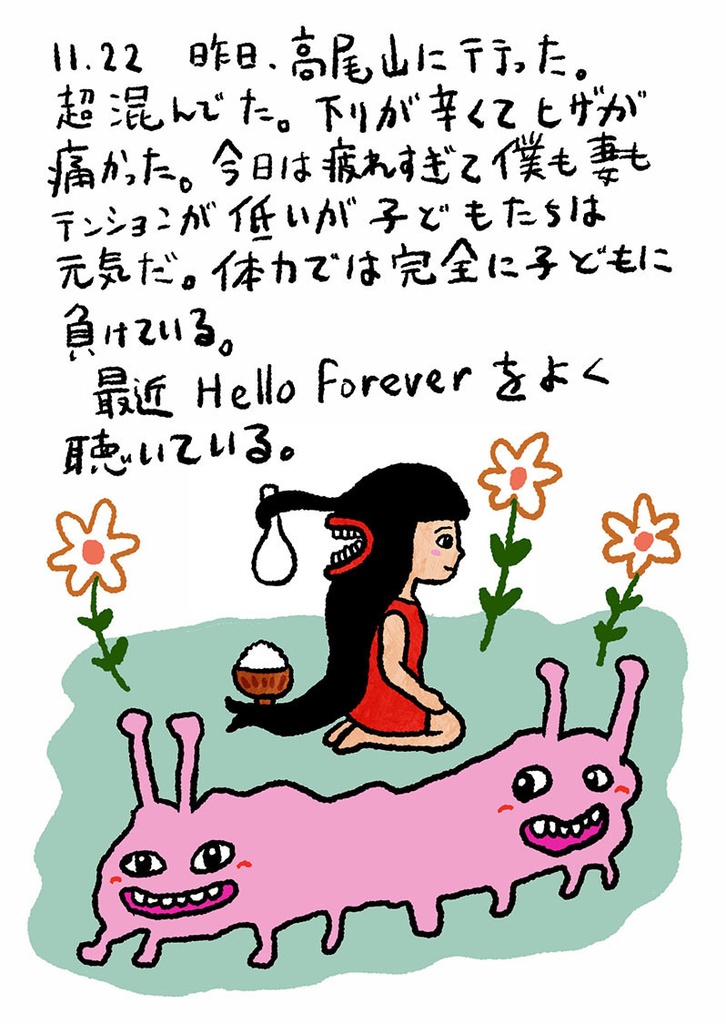 11.22 昨日、高尾山に行った。
超混んでた。下りが辛くてヒザが
痛かった。今日は疲れすぎて僕も妻も
テンションが低いが子どもたちは
元気だ。体力では完全に子どもに
負けている。
最近 Hello Forever をよく
聴いている。